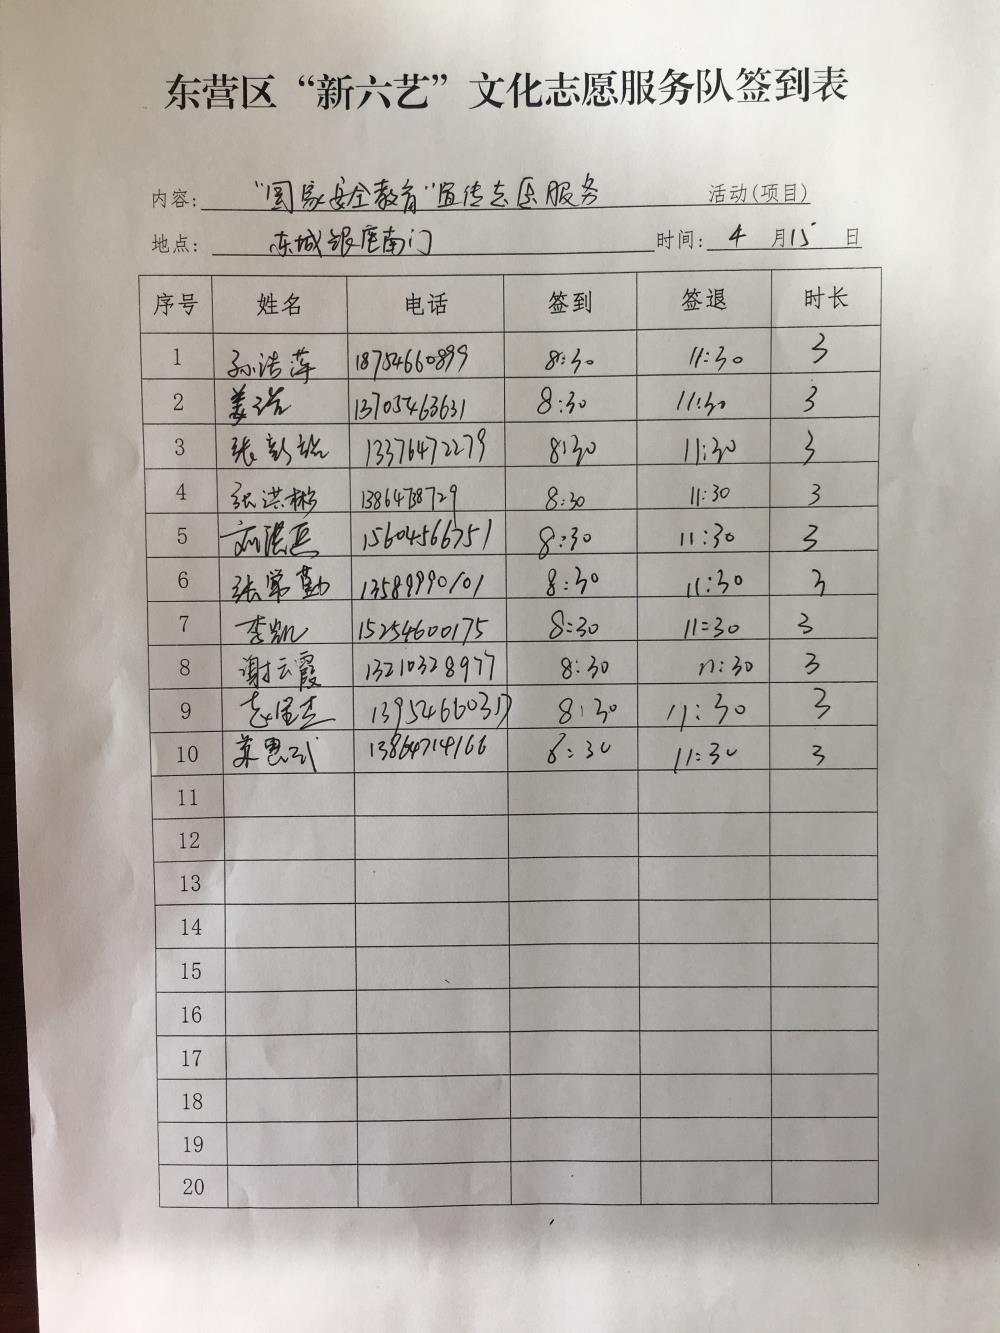 东营区“新六艺”文化志愿服务队签到表
内容: “国家安全教育”宣传志愿服务 活动(项目)
地点: 东城银座南门 时间: 4 月 15 日
序号 姓名 电话 签到 签退 时长
1 孙洁萍 18754660899 8:30 11:30 3
2 姜涛 13705463631 8:30 11:30 3
3 张 13376472279 8:30 11:30 3
4 张洪彬 1386478729 8:30 11:30 3
5 15604566751 8:30 11:30 3
6 张常勤 13589990101 8:30 11:30 3
7 李凯 15254600175 8:30 11:30 3
8 谢云霞 13210328977 8:30 11:30 3
9 13954660317 8:30 11:30 3
10 苏思 13864714166 8:30 11:30 3
11
12
13
14
15
16
17
18
19
20